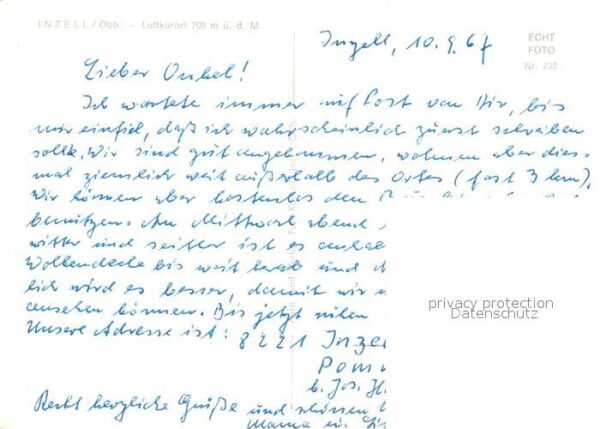 INZELL/Obb. - Luftkurort 700 m ü. d. M.
ECHT
FOTO
Nr. 732
Inzell, 10.9.67
Lieber Onkel!
Ich wartete immer auf Post von Dir, bis
mir einfiel, daß ich wahrscheinlich zuerst schreiben
sollte. Wir sind gut angekommen, wohnen aber dies-
mal ziemlich weit außerhalb des Ortes (fast 3 km).
Wir können aber kostenlos den
benützen. Am Mittwoch abend
witter und seither ist es
Wolkendecke bis weit herab und
lich wird es besser, damit wir
ansehen können. Bis jetzt
Unsere Adresse ist: 8221 Inzell
b. Jos.
Recht herzliche Grüße und schönen
Mama u.
privacy protection
Datenschutz